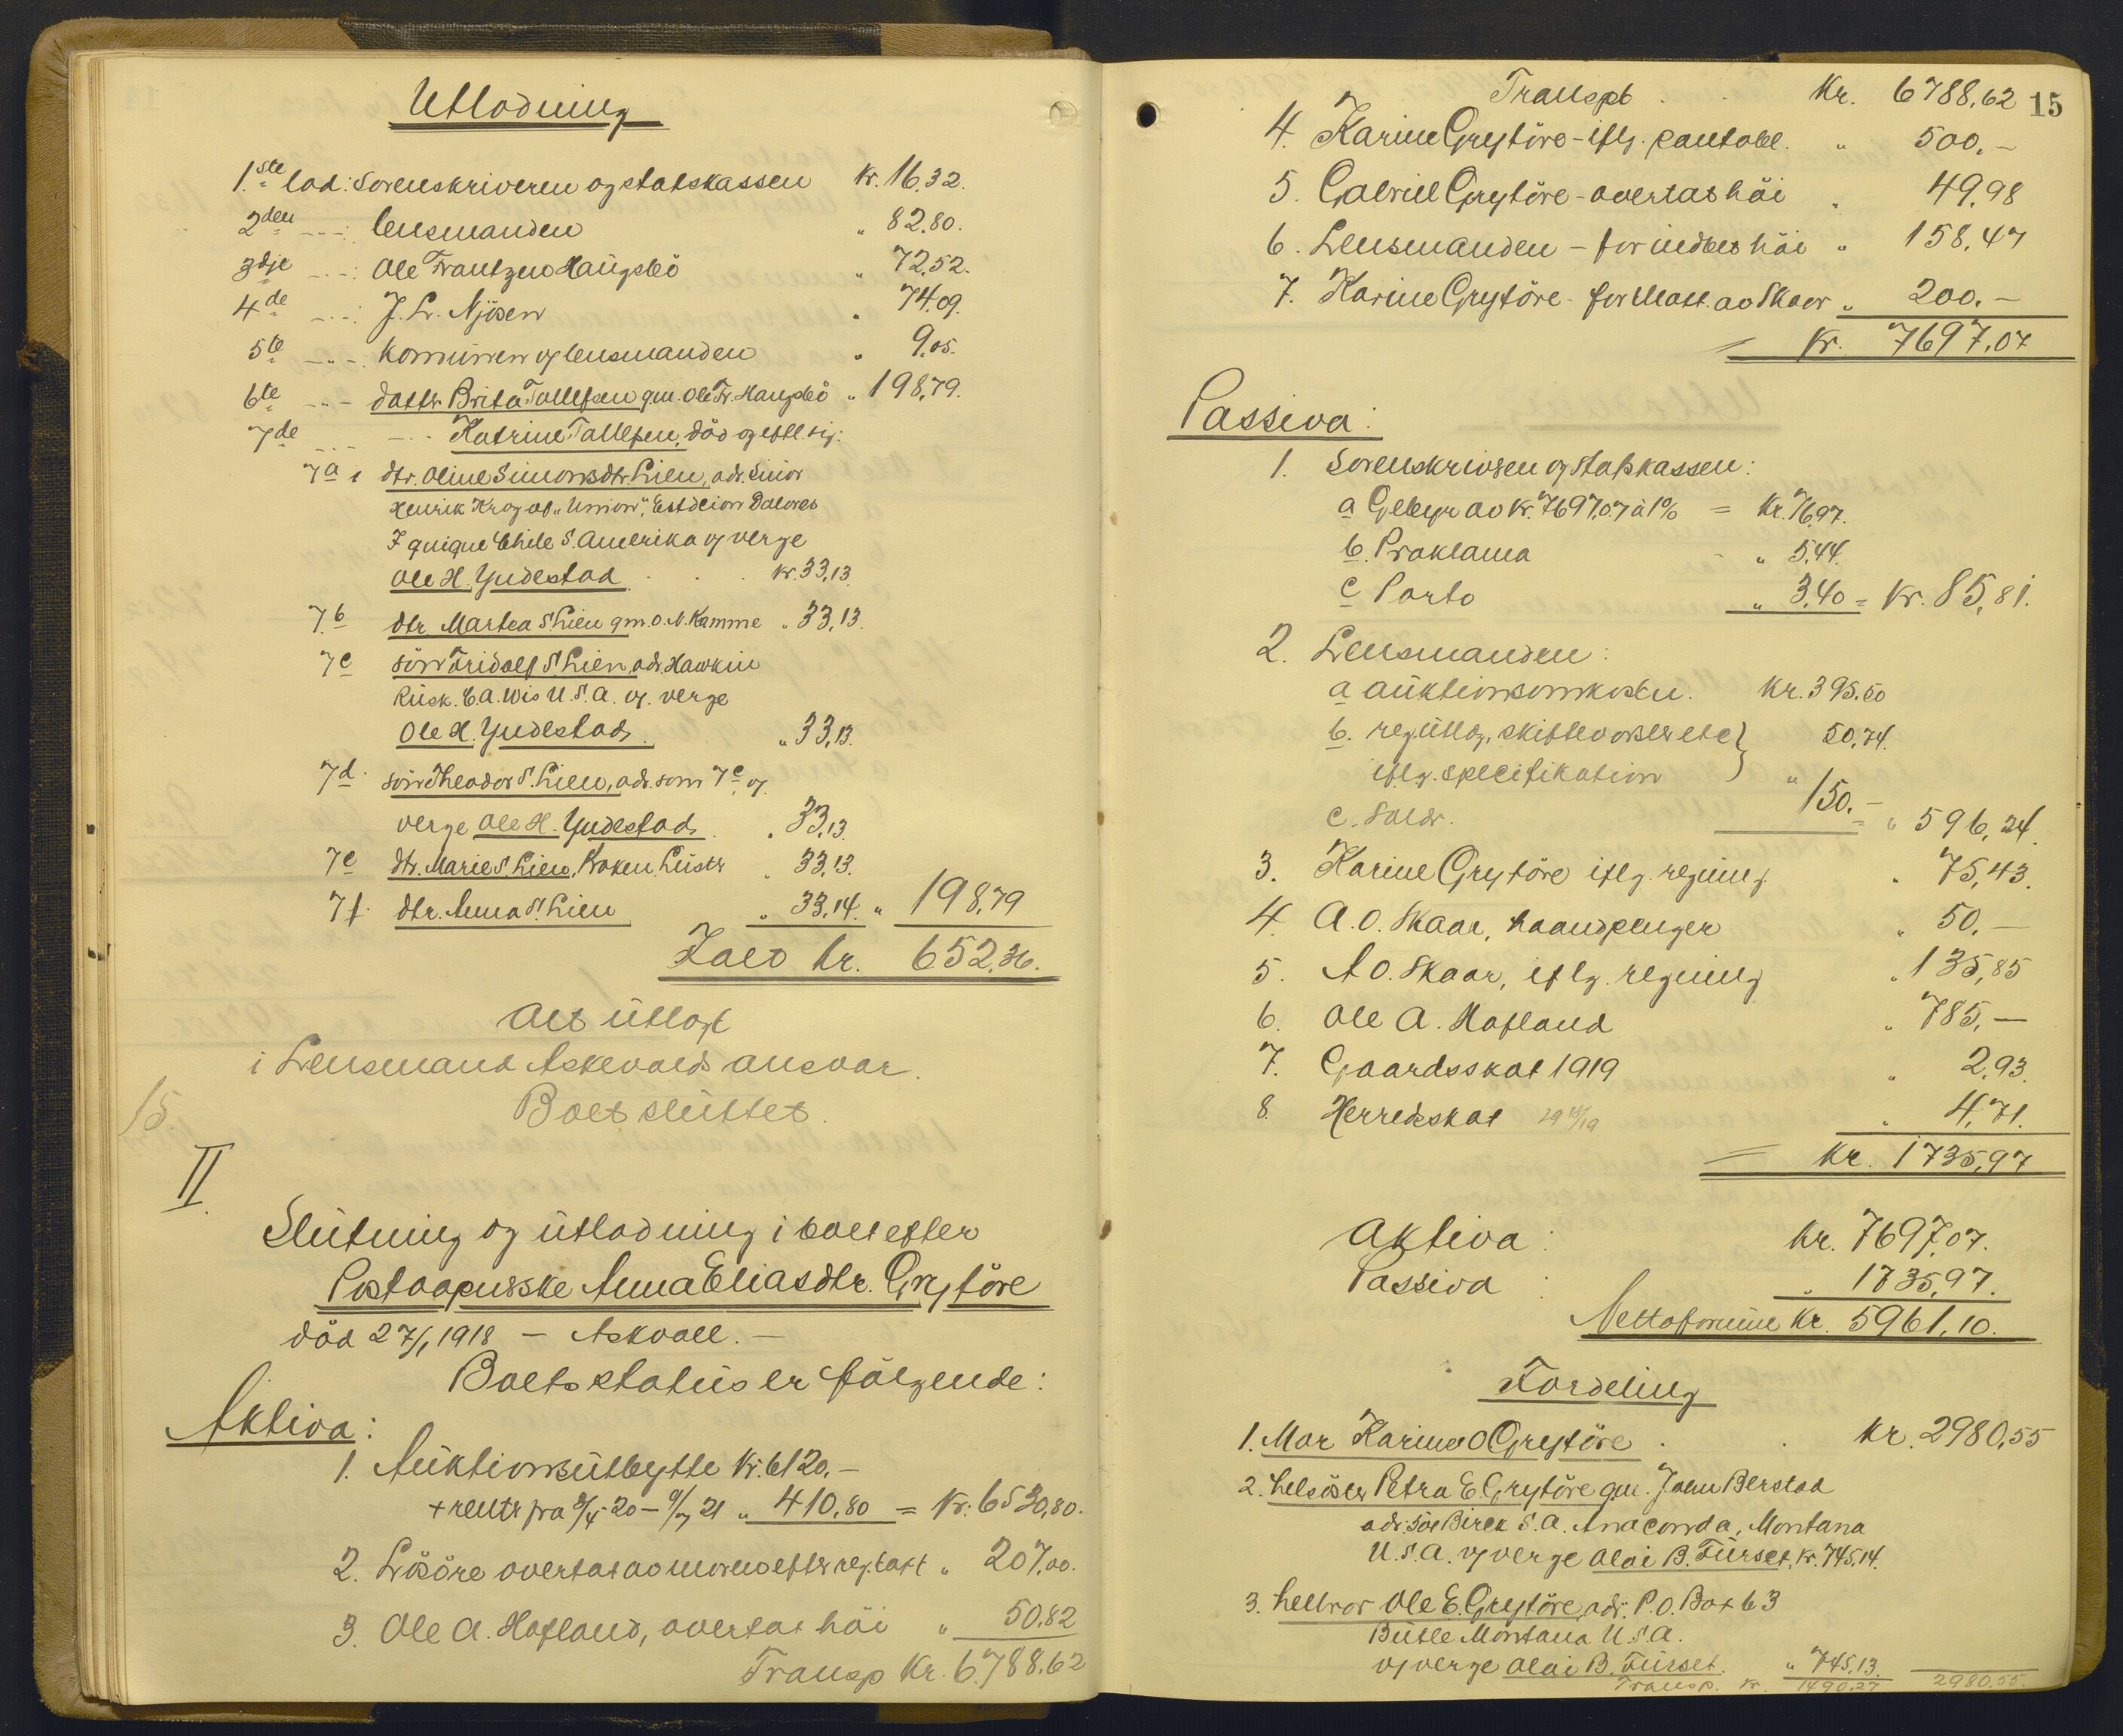 Utlodning
1.ste lod: Sorenskriveren og statskassen kr. 16,32.
2den -..-: lensmanden " 82,80.
3dje -..-: Ole Frantzen Haugsbö " 72,52.
4de -..-: J. L. Njösen " 74,09.
5te -..-: Kommunen og lensmanden " 9,05.
6te -..- datter Brita Tollefsen gm. Ole Fr. Haugsbö " 198,79.
7de -..- -..- Katrine Tollefsen, död og eftl. sig:
7a dtr. Oline Simonsdtr. Lien, adr. Senior
Henrik Krog of "Union", Estacion Dolores
Iquique Chile S. Amerika og verge
Ole H. Yndestad . . . kr. 33,13.
7.b dtr Martea S. Lien gm. O. N. Kamme " 33,13.
7c sön Fridolf S. Lien adr. Hawkin
Rusk. C.a. Wis U.S.A. og verge
Ole H. Yndestad. " 33,13.
7d. sön Theodor S. Lien, adr. som 7c og
verge Ole H. Yndestad. " 33,13.
7e dtr. Marie S. Lien, Kroken Luster " 33,13.
7f. dtr. Anna S. Lien " 33,14. " 198,79
Talt kr. 652,36.
Alt utlagt
i Lensmand Askevolds ansvar.
15. Boet sluttet.
II.
Slutning og utlodning i boet efter
Postaapnerske Anna Eliasdtr. Grytöre
död 27/1, 1918 – Askvoll. –
Boets status er fölgende:
Aktiva:
1. Auktionsutbytte kr. 6120,–
+ renter fra 8/4 20 – 9/7 21 " 410,80 = kr: 6530,80.
2. Lösöre overtat av moren efter reg.takt " 207,00.
3. Ole A. Hofland, overtat höi " 50,82
Transp kr. 6788,62
Transpt . . kr. 6788,62 15
4. Karine Grytöre – iflg. pantobl. " 500,–
5. Gabriel Grytöre – overtat höi " 49,98
6. Lensmanden – for indbet höi " 158,47
7. Karine Grytöre – for Matt. av Skaar " 200,–
= kr. 7697,07
Passiva:
1. Sorenskriveren og statskassen:
a Gebyr av kr. 7697,07 à 1% = kr. 76,97.
b. Proklama - " 5,44.
c Porto " 3,40 = kr. 85,81.
2. Lensmanden:
a auktionsomkostn. kr. 395,50
b. reg. utlæg, skifteforsler etc } 50,74.
iflg. specifikation "
c. Salær. 150,– = " 596,24.
3. Karine Grytöre iflg. regning " 75,43.
4. A. O. Skaar, haandpenger " 50,–
5. A O. Skaar, iflg. regning " 135,85
6. Ole A. Hofland " 785,–
7. Gaardsskat 1919 " 2,93.
8. Herredsskat 1918/19 " 4,71.
= kr. 1735,97
Aktiva: kr. 7697,07.
Passiva : " 1735,97.
Nettoformue kr. 5961,10.
Fordeling
1. Mor Karine O Grytöre . . kr. 2980,55
2. helsöster Petra E. Grytöre gm. John Berstad
adr. 508 Birch S.A. Anaconda, Montana
U.S.A. og verge Olai B. Furset. kr. 745,14.
3. helbror Ole E. Grytöre, adr. P.O. Box 63
Butle Montana U.S.A.
og verge Olai B. Furset. " 745,13.
Transp. kr. 1490,27 2980,55.